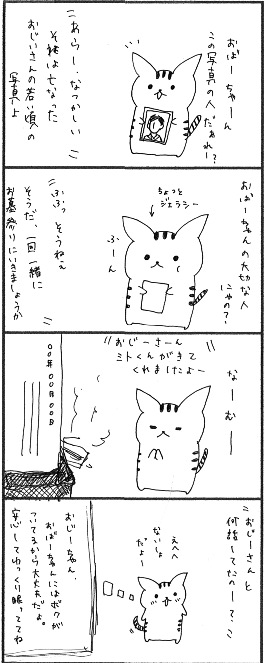 おばーちゃーん
この写真の人
だぁれー?
あらー!なつかしい
それは亡なった
おじいさんの若い頃の
写真よ
おばーちゃんの大切な人
にゃの?
ちょっと
ジェラシー
ふーん
ふふっ そうねぇ
そうだ、一回一緒に
お墓参りにいきましょうか
なーむー
おじーさーん
ミトくんがきて
くれましたよー
〇〇年〇〇月〇〇日
おじーさんと
何話してたのー?
えへへ
ないしょ
だよー
おじーちゃん、
おばーちゃんにはボクが
ついてるから大丈夫だよ。
安心してゆっくり眠っててね